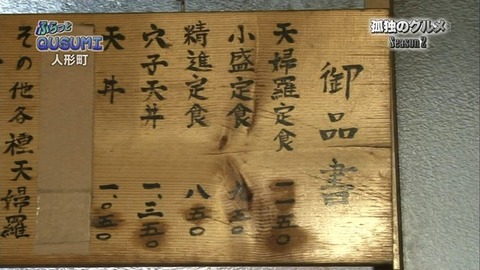 ふらっと
QUSUMI
人形町
孤独のグルメ
Season 2
御品書
天婦羅定食 一一五〇
小盛定食 九五〇
精進定食 八五〇
穴子天丼 一、三五〇
天丼 一、〇五〇
その他各種天婦羅